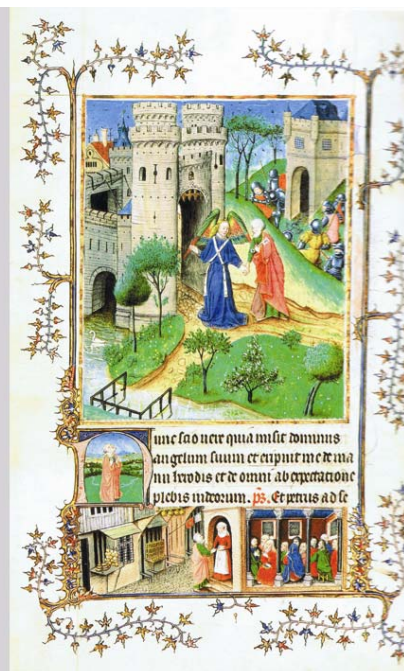 Nunc scio vere quia misit dominus
angelum suum et eripuit me de ma
nu herodis et de omni abexpectacione
plebis iudeorum. ps. Et petrus ad se